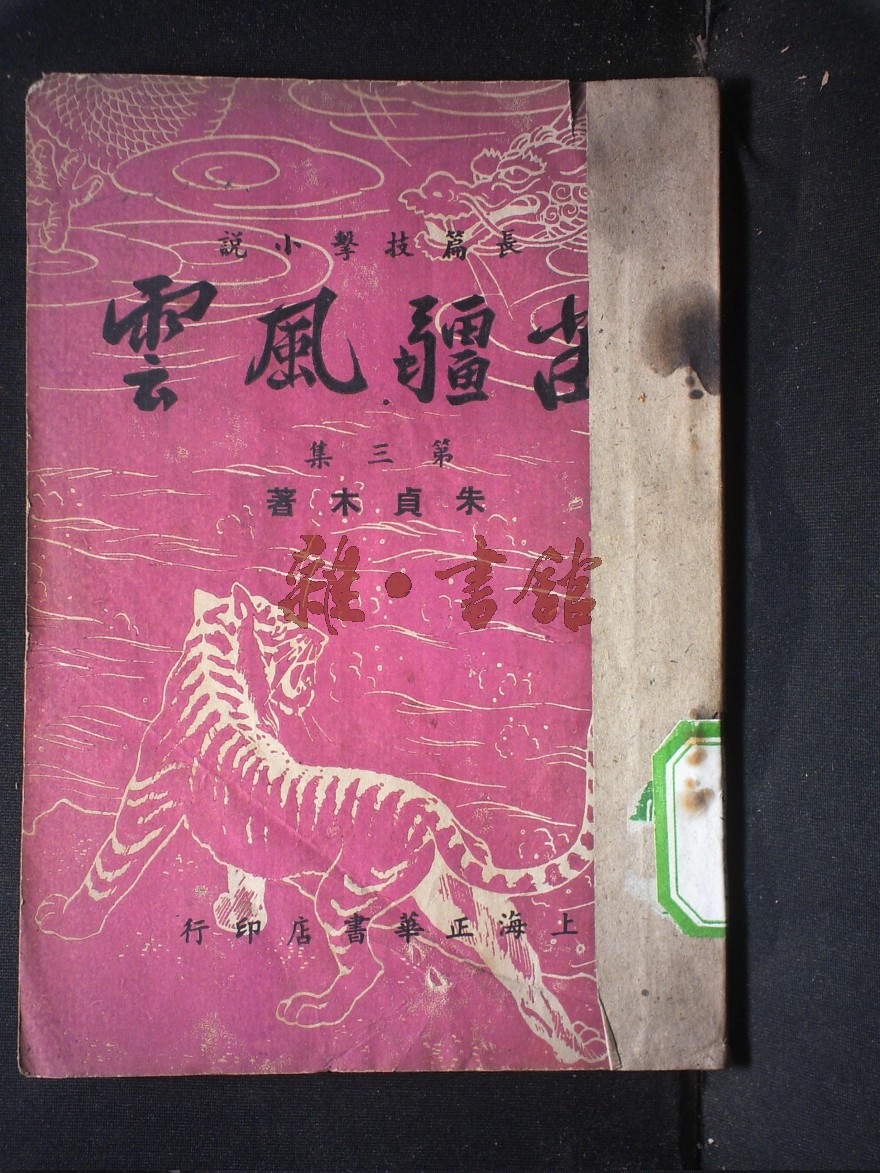 長篇技擊小説
苗疆風雲
第三集
朱貞木著
雜·書館
上海正華書店印行